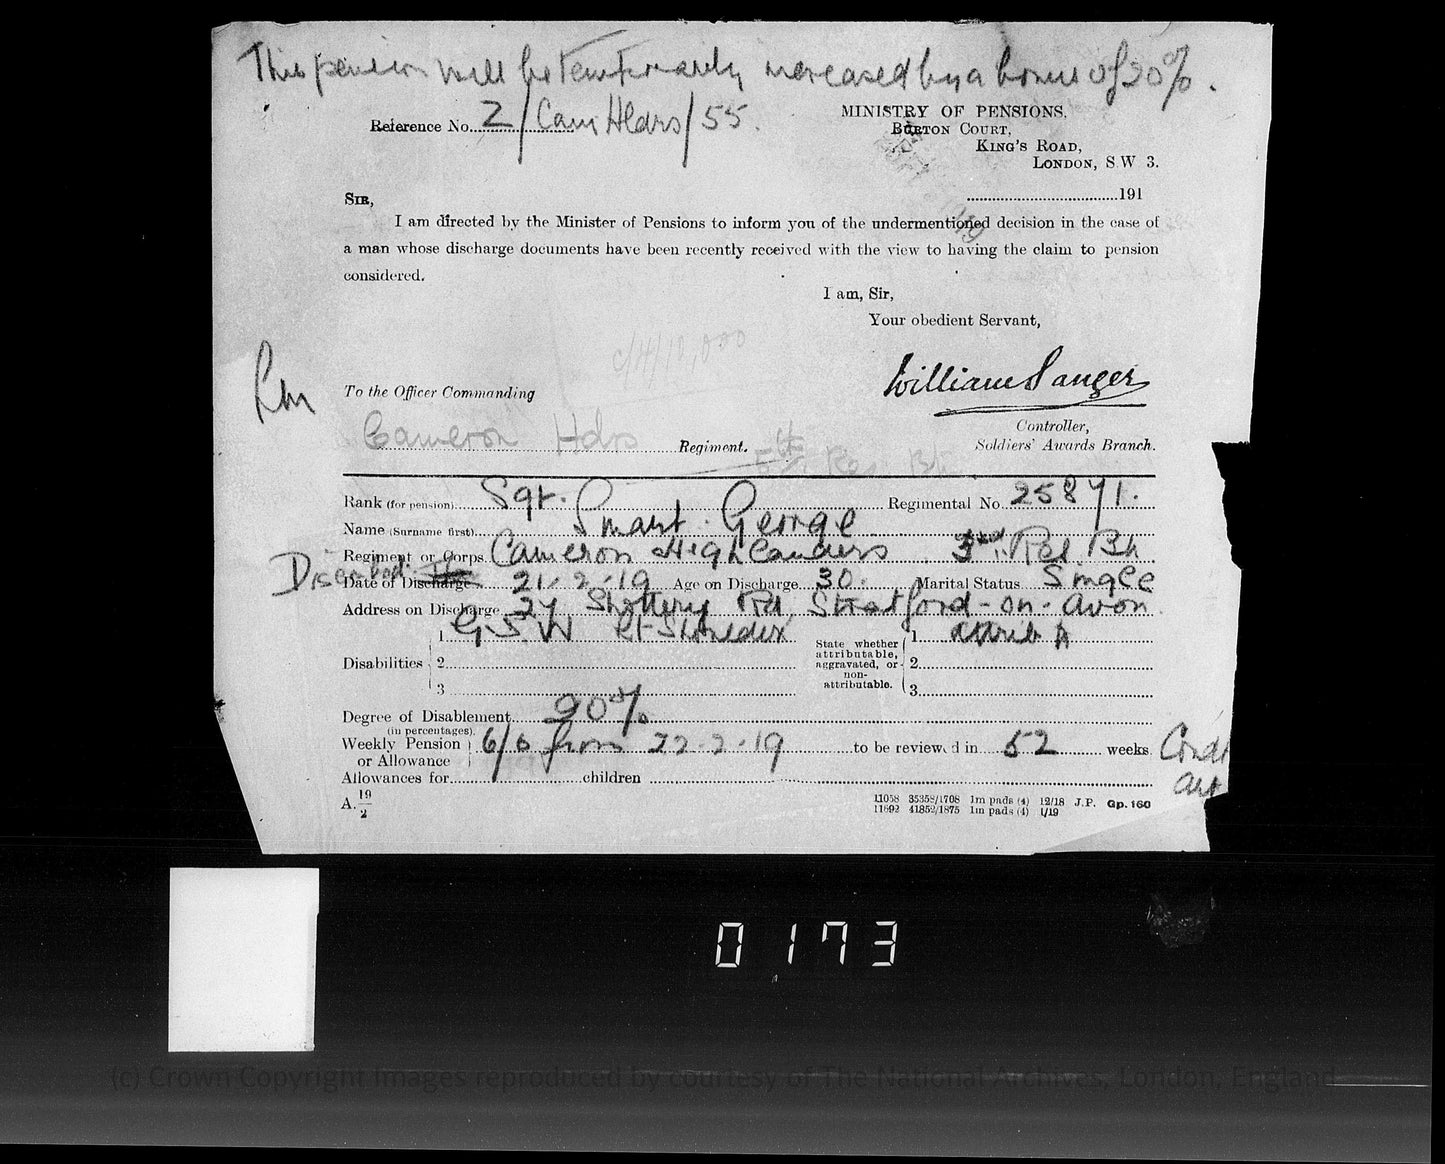 This pension will be temporarily increased by a bonus of 20%.
Reference No. Z/Cam Hldrs/55.
MINISTRY OF PENSIONS,
BURTON COURT,
KING'S ROAD,
LONDON, S.W 3.
191
SIR,
I am directed by the Minister of Pensions to inform you of the undermentioned decision in the case of
a man whose discharge documents have been recently received with the view to having the claim to pension
considered.
I am, Sir,
Your obedient Servant,
To the Officer Commanding
William Sanger
Controller,
Soldiers' Awards Branch.
Cameron Hdrs Regiment.
Res Bn
Rank (for pension) Sgt. Regimental No. 25871.
Name (Surname first) Smart George
Regiment or Corps. Cameron Highlanders 3rd Res. Bn
Disembod:
Date of Discharge 21-2-19 Age on Discharge 30. Marital Status Single
Address on Discharge 27 Shottery Rd, Stratford-on-Avon
Disabilities 1 GSW Rt Shoulder
2
3
State whether attributable, aggravated, or non-attributable. 1 attrib
2
3
Degree of Disablement (in percentages). 20%
Weekly Pension or Allowance 6/6 from 22-2-19 to be reviewed in 52 weeks
Allowances for children
A. 19/2
11058 35358/1708 1m pads (4) 12/18 J.P. Gp. 160
11692 41852/1875 1m pads (4) 1/19
0173
(c) Crown Copyright Images reproduced by courtesy of The National Archives, London, England